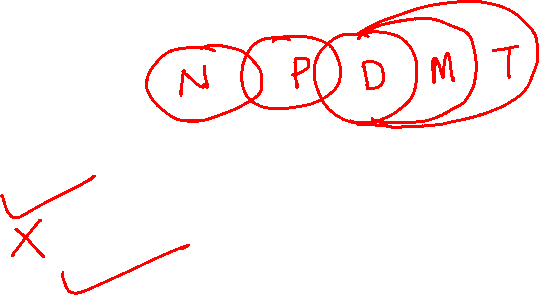 N P D M T
✓
X
✓